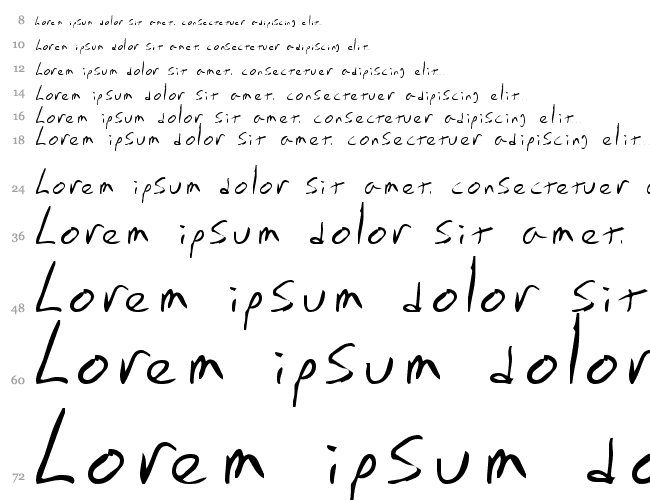 8 Lorem ipsum dolor sit amet, consectetuer adipiscing elit...
10 Lorem ipsum dolor sit amet, consectetuer adipiscing elit...
12 Lorem ipsum dolor sit amet, consectetuer adipiscing elit...
14 Lorem ipsum dolor sit amet, consectetuer adipiscing elit...
16 Lorem ipsum dolor sit amet, consectetuer adipiscing elit...
18 Lorem ipsum dolor sit amet, consectetuer adipiscing elit...
24 Lorem ipsum dolor sit amet, consectetuer a
36 Lorem ipsum dolor sit amet,
48 Lorem ipsum dolor sit
60 Lorem ipsum dolor
72 Lorem ipsum do